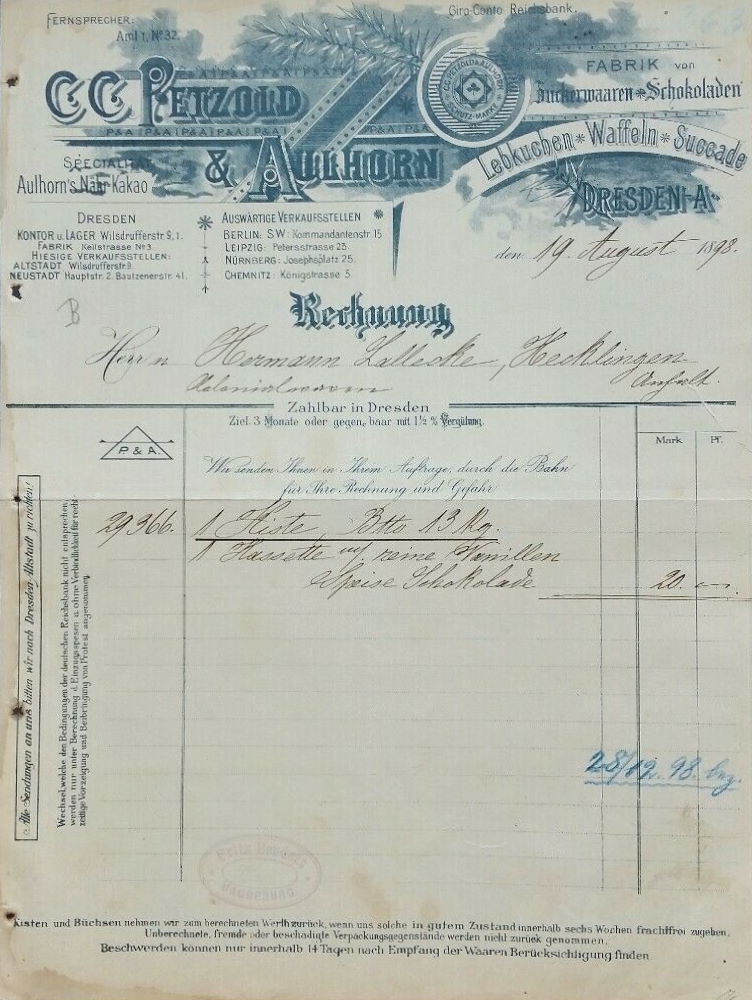 FERNSPRECHER:
Amt 1, No 32.
Giro-Conto Reichsbank.
C.C. PETZOLD
& AULHORN
P & A
C.C. PETZOLD & AULHORN
SCHUTZ-MARKE
FABRIK von
Zuckerwaaren * Schokoladen
Lebkuchen * Waffeln * Succade
DRESDEN-A.
SPECIALITÄT
Aulhorn's Nähr-Kakao
DRESDEN
KONTOR u. LAGER Wilsdrufferstr. 9, I.
FABRIK Keilstrasse No 3.
HIESIGE VERKAUFSSTELLEN:
ALTSTADT Wilsdrufferstr. 9
NEUSTADT Hauptstr. 2. Bautzenerstr. 41.
AUSWÄRTIGE VERKAUFSSTELLEN
BERLIN: S.W: Kommandantenstr. 15
LEIPZIG: Petersstrasse 23.
NÜRNBERG: Josephsplatz 25.
CHEMNITZ: Königstrasse 5.
den 19. August 1898.
B
Rechnung
Herrn Hermann Lallecke, Hecklingen
Kolonialwaaren Anhalt.
Zahlbar in Dresden
Ziel 3 Monate oder gegen baar mit 1½ % Vergütung.
Mark Pf.
P. & A.
Wir senden Ihnen in Ihrem Auftrage, durch die Bahn
für Ihre Rechnung und Gefahr
29366. 1 Kiste, Btto. 13 Kg.
1 Kassette reine Vanillen
Speise Schokolade 20.
Alle Sendungen an uns bitten wir nach Dresden Altstadt zu richten!
Wechsel, welche den Bedingungen der deutschen Reichsbank nicht entsprechen,
werden nur unter Berechnung d. Einzugsspesen u. ohne Verbindlichkeit für recht-
zeitige Vorzeigung und Beibringung von Protest angenommen.
28/12. 98. bez.
Fritz
MAGDEBURG
Kisten und Büchsen nehmen wir zum berechneten Werth zurück, wenn uns solche in gutem Zustand innerhalb sechs Wochen frachtfrei zugehen.
Unberechnete, fremde oder beschädigte Verpackungsgegenstände werden nicht zurück genommen.
Beschwerden können nur innerhalb 14 Tagen nach Empfang der Waaren Berücksichtigung finden.